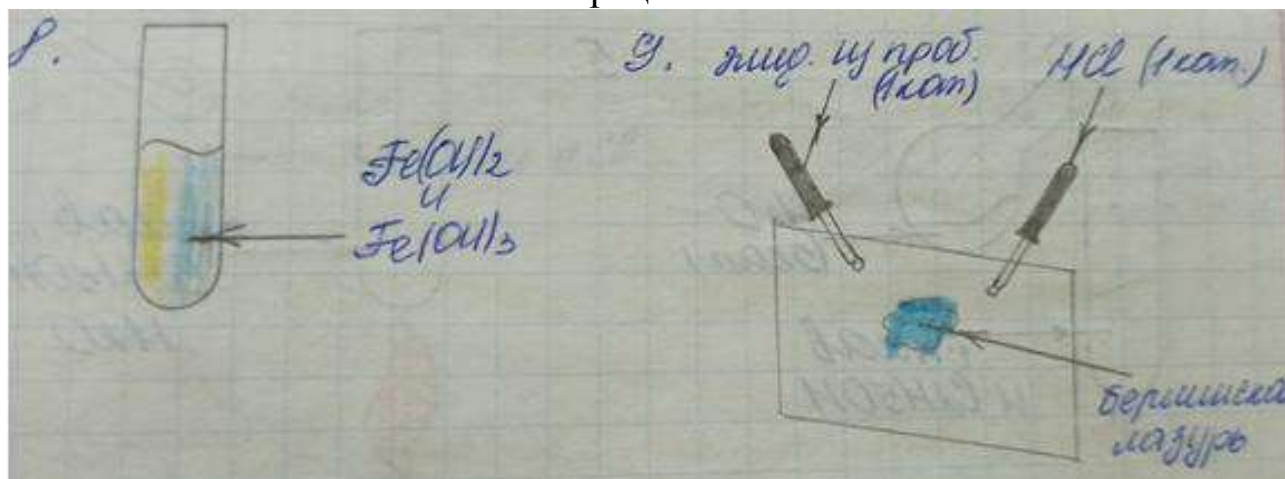 8.
Fe(OH)2
и
Fe(OH)3
9. жид. из проб.
(1кап)
HCl (1кап.)
берлинска
лазурь